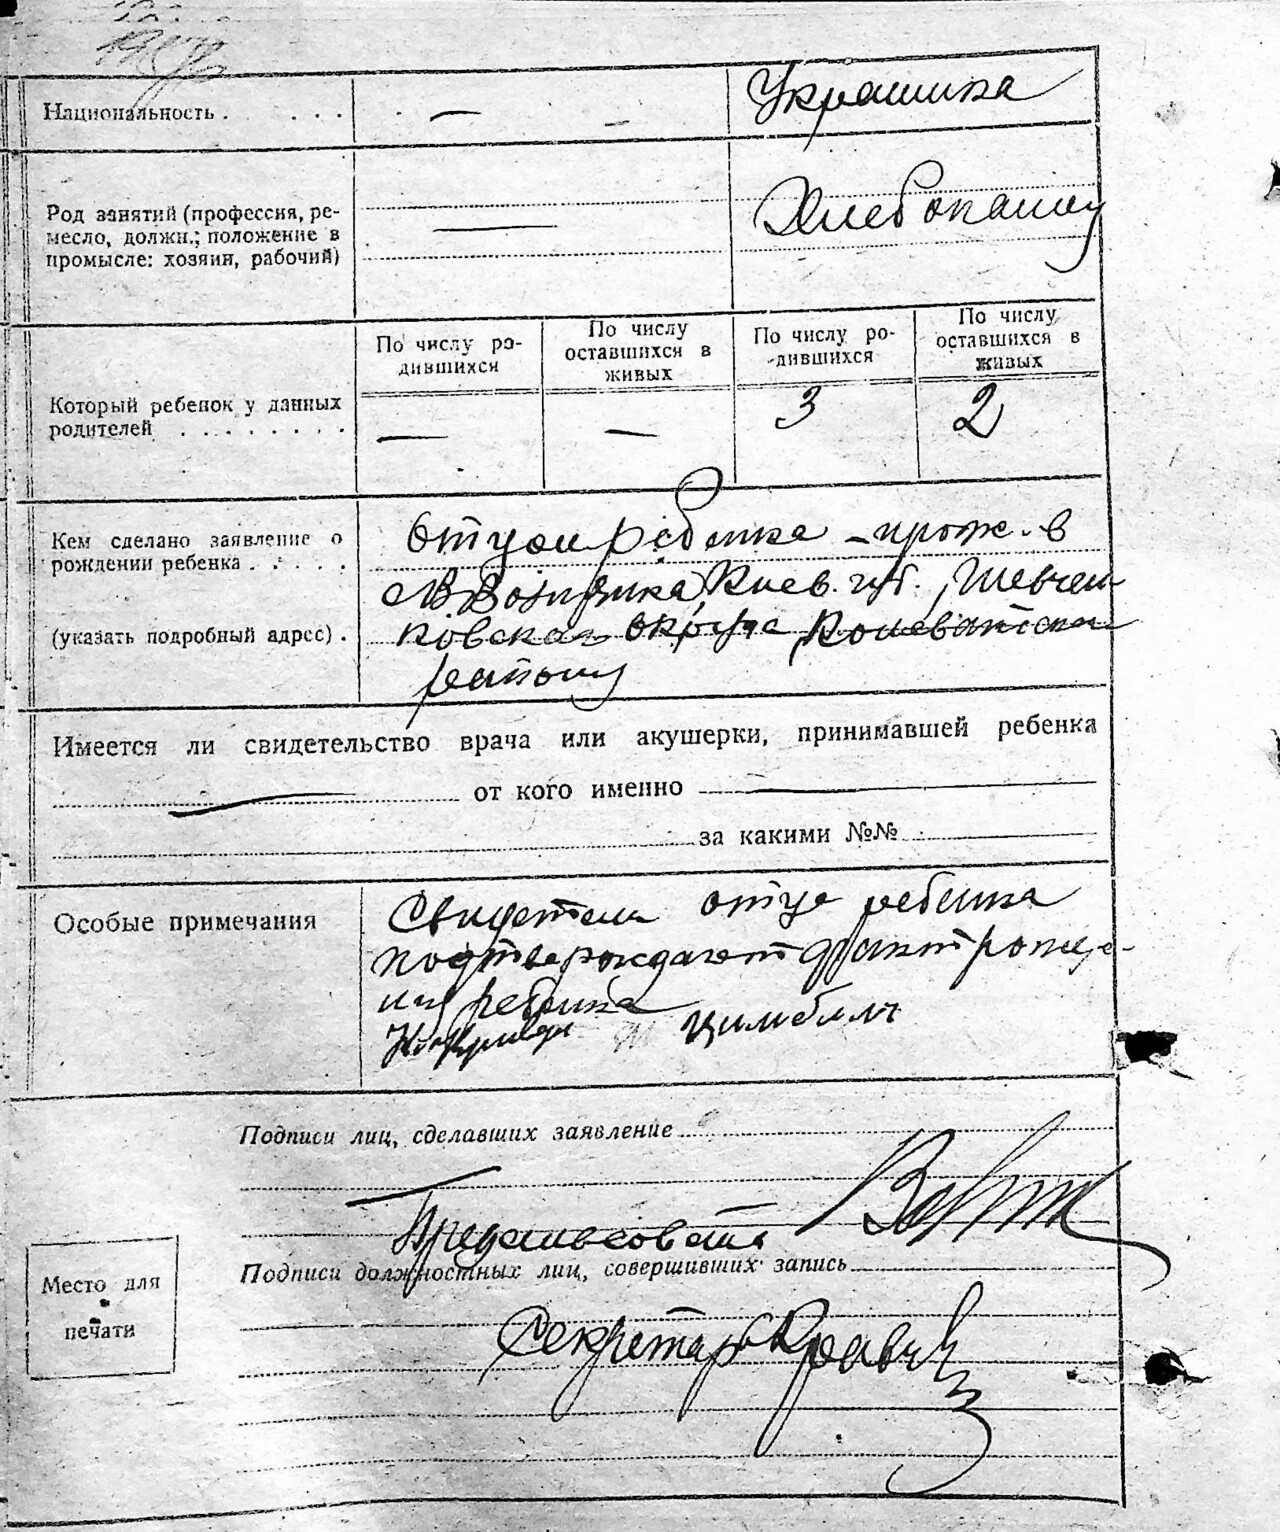 Национальность . . . . . — — Украинка
Род занятий (профессия, ре-
месло, должн.; положение в
промысле: хозяин, рабочий)
— Хлебопашец
По числу ро-
дившихся
По числу
оставшихся в
живых
По числу ро-
дившихся
По числу
оставшихся в
живых
Который ребенок у данных
родителей . . . . . . . .
— — 3 2
Кем сделано заявление о
рождении ребенка . . . . .
(указать подробный адрес) .
Отцом ребенка – прож. в
Киев. губ., Шевчен
ковская округа
району
Имеется ли свидетельство врача или акушерки, принимавшей ребенка
— от кого именно —
за какими №№
Особые примечания
Свидетели отца ребенка
подтверждают факт рожде-
ния ребенка
Цимбал
Подписи лиц, сделавших заявление
Предсельсовета
Подписи должностных лиц, совершивших запись
Секретарь
Место для
печати